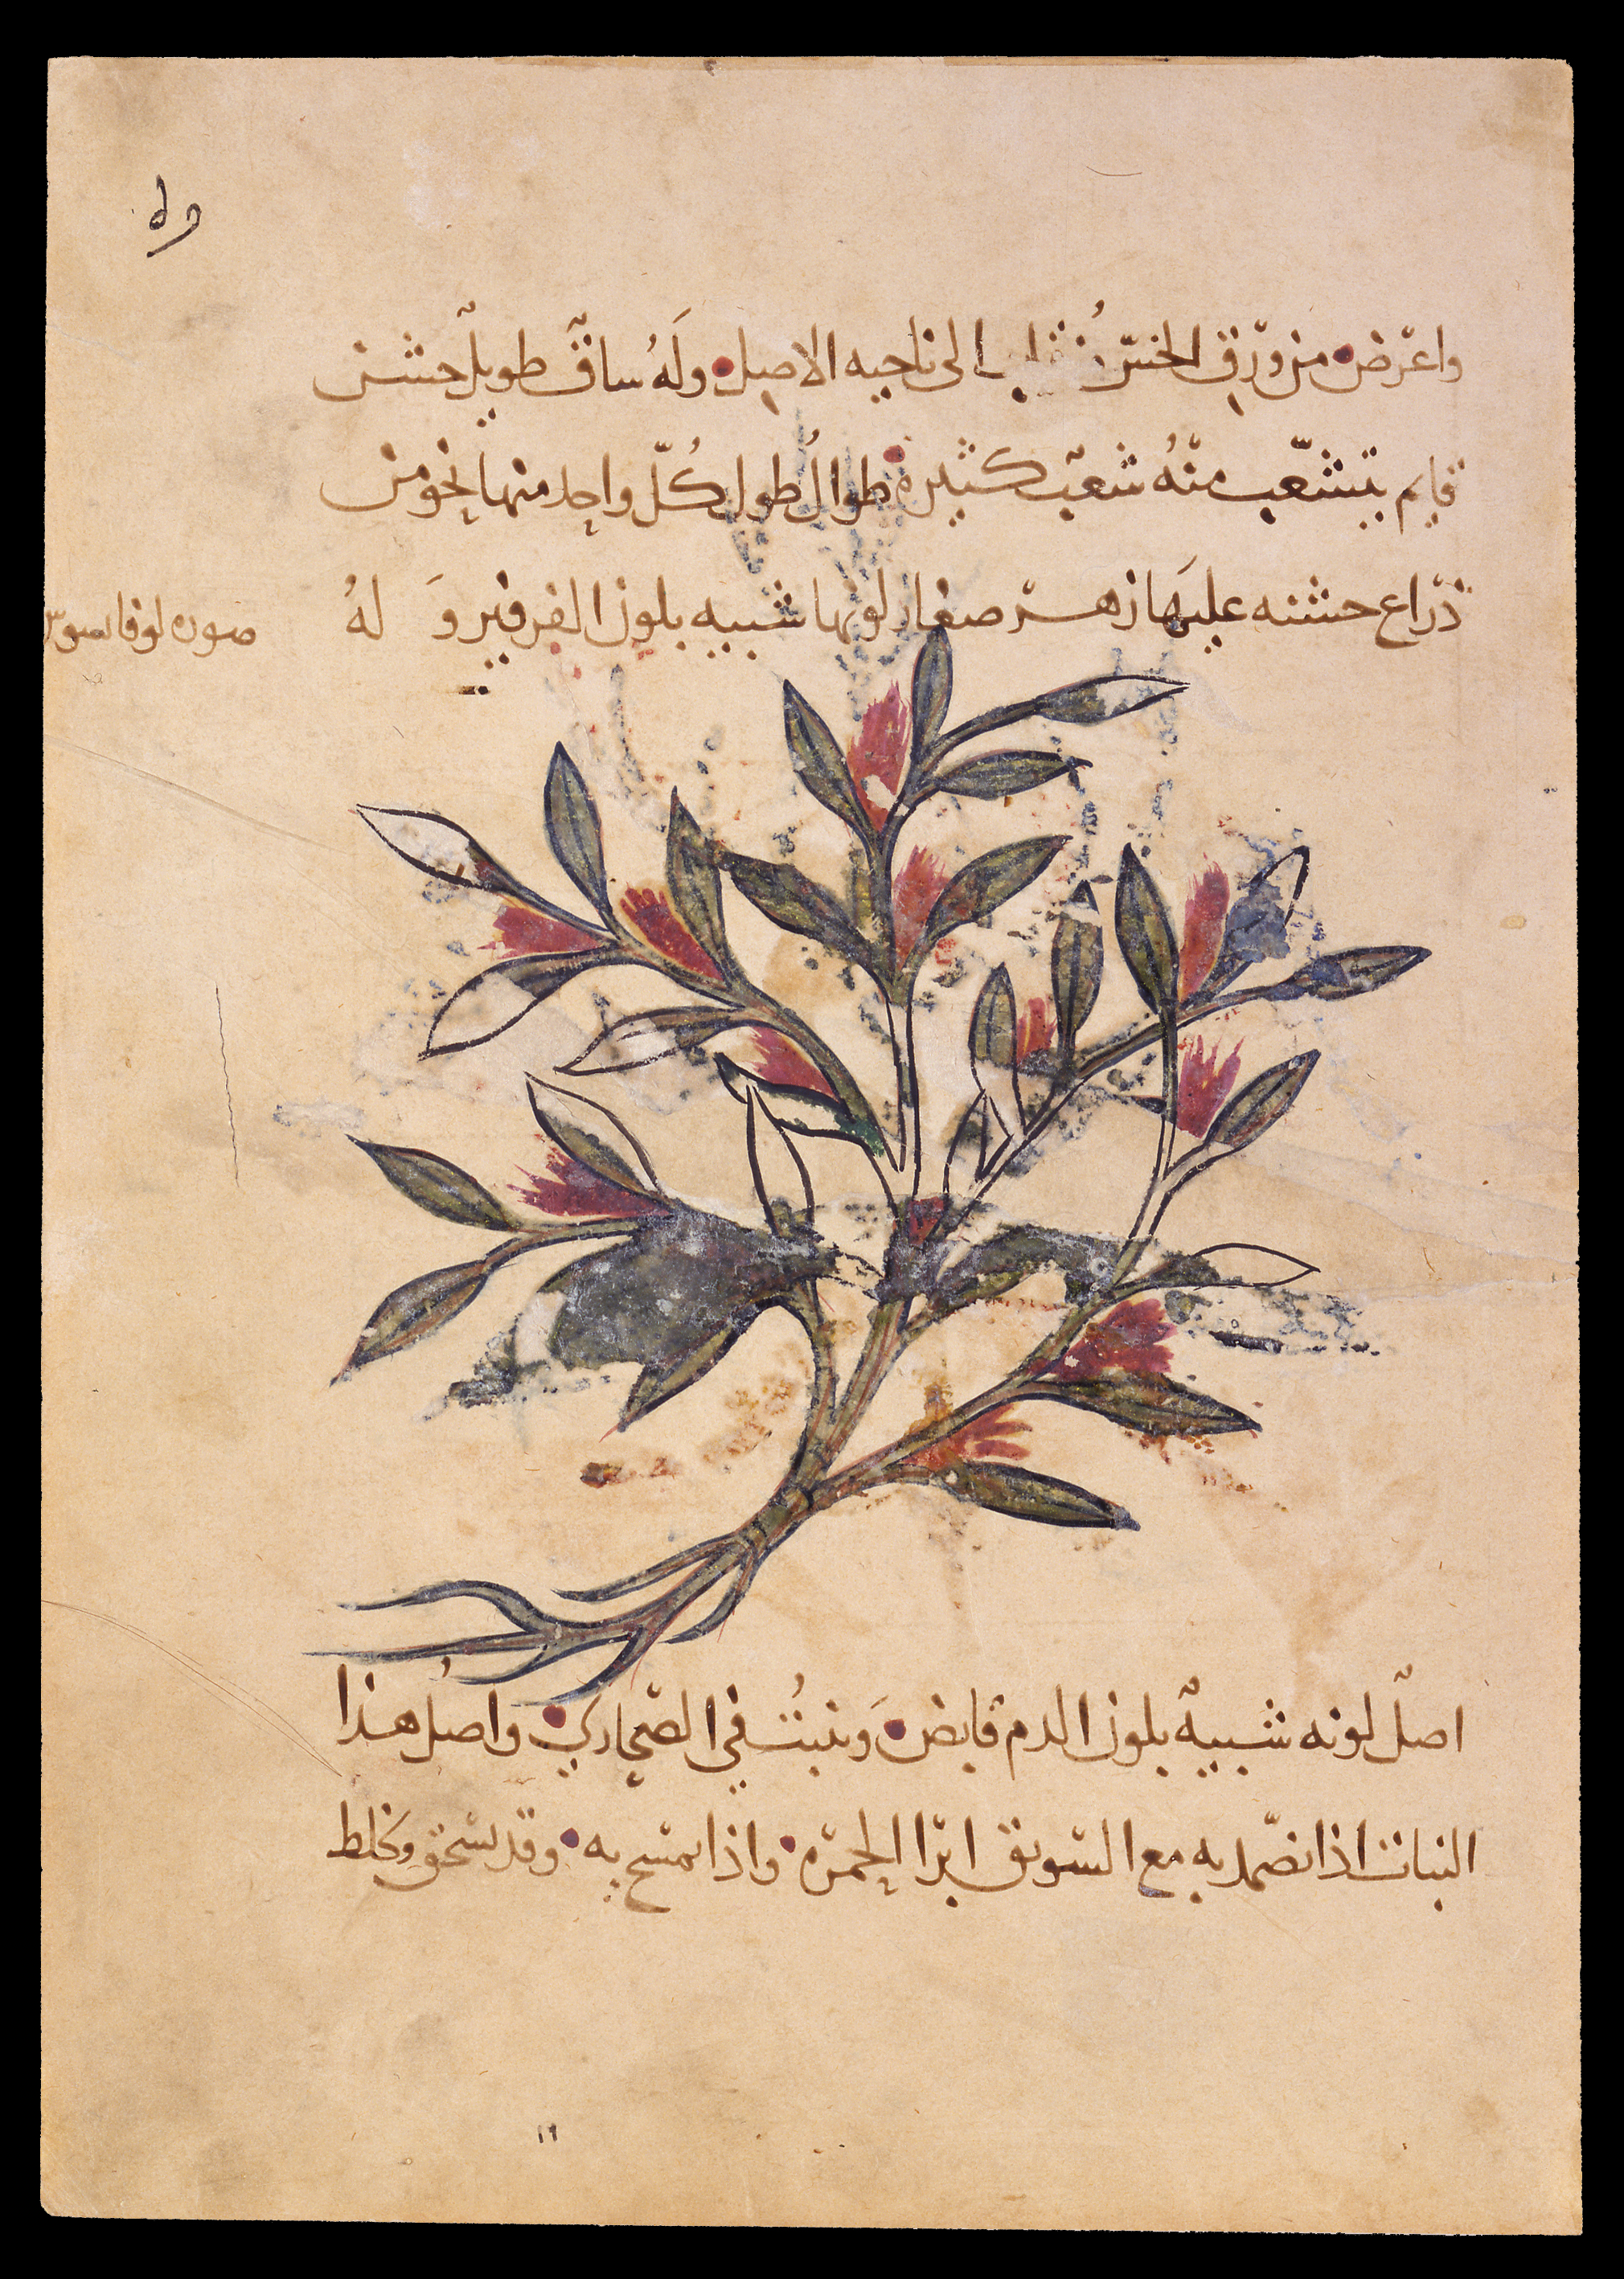 واعرض من ورق الخس الى ناحيه الاصل وله ساق طويل خشن
قايم يتشعب منه شعب كثيرة طوال طول كل واحد منها نحو من
ذراع خشنه عليها زهر صغار لونها شبيه بلون الفرفير و له
صوره لوفا
اصل لونه شبيه بلون الدم قابض وينبت في الصحاري واصل هذا
النبات اذا تضمد به مع السويق ابرا الحمرة واذا تمسح به وقد يسحق ويخلط